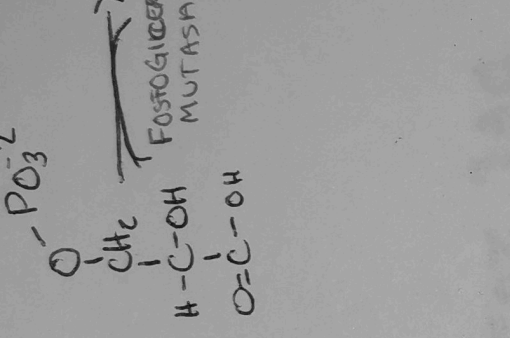 O-PO₃⁻²
CH₂
H-C-OH
O=C-OH
FOSFOGLICER
MUTASA